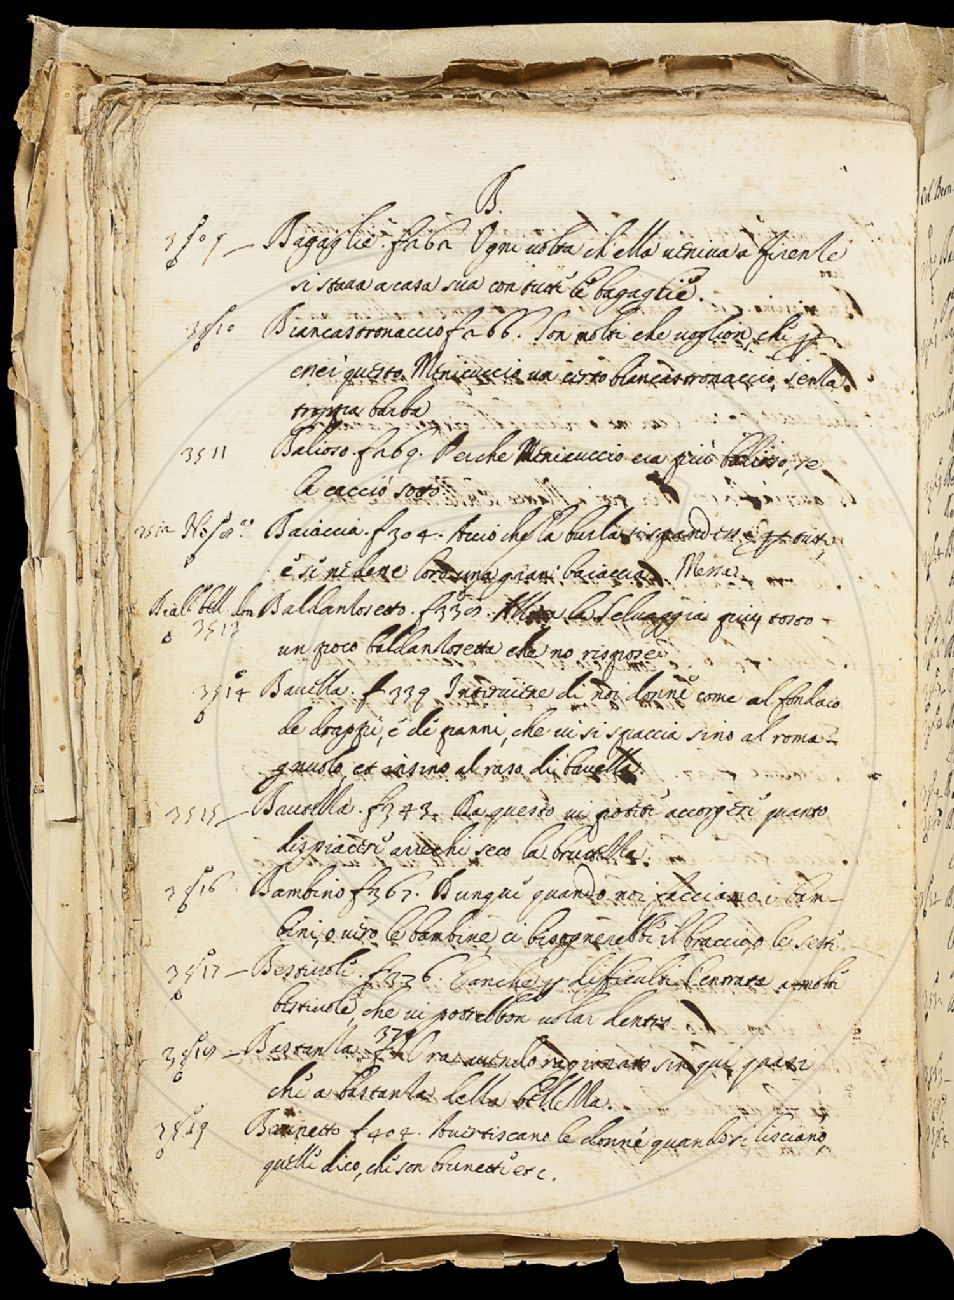 B.
3509 Bagaglie. f 262 Ogni volta ch'ella veniva a firenze
si stava a casa sua con tutte le bagaglie.
3510 Biancastronaccio f 266. Son molti che voglion, che
questo Menicuccio un certo biancastronaccio, senza
troppa barba
3511 Balioso. f 269. Perche Menicuccio era più balioso, se
la cacciò sotto
3512 Baiaccia. f 304. Acciò che la burla si spandesse
e si vedene loro una gran baiaccia. Messa
3513 Baldanzosetto. f 330. la Selvaggia più tosto
un poco baldanzosetta che no rispose
3514 Bavella. f 339 Interviene di noi donne come al fondaco
de drappi, e di panni, che vi si spaccia sino al roma-
gnuolo, et insino al raso di bavella.
3515 f 343. Da questo vi potete accorgere quanto
dispiacere arrechi seco la
3516 Bambino f 367. Dunque quando noi facciamo i bam-
bini, o vero le bambine, ci bisognerebbe il braccio, o le seste
3517 Bestivole. f 376. E anche p difficultà l'entrata a molte
bestivole, che vi potrebbon volar dentro
Bastanza 379 Ora avendo ragionato sin qui quasi
che a bastanza della bellezza.
3519 Brunetto f 404. Avertiscano le donne quando si lisciano,
quelle dico, che son brunette etc.